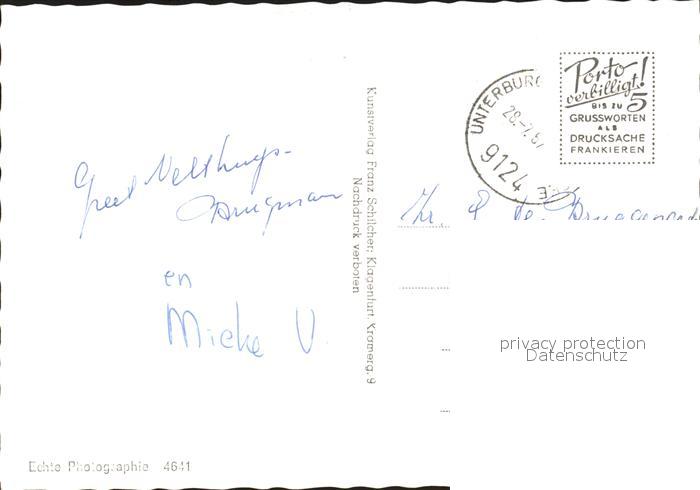 Greet Velthuys-
Brugman
en
Mieke V.
Kunstverlag Franz Schilcher, Klagenfurt, Kramerg. 9
Nachdruck verboten
UNTERBURG
28.-7.67
9124
Porto
verbilligt!
BIS ZU 5
GRUSSWORTEN
ALS
DRUCKSACHE
FRANKIEREN
privacy protection
Datenschutz
Echte Photographie 4641